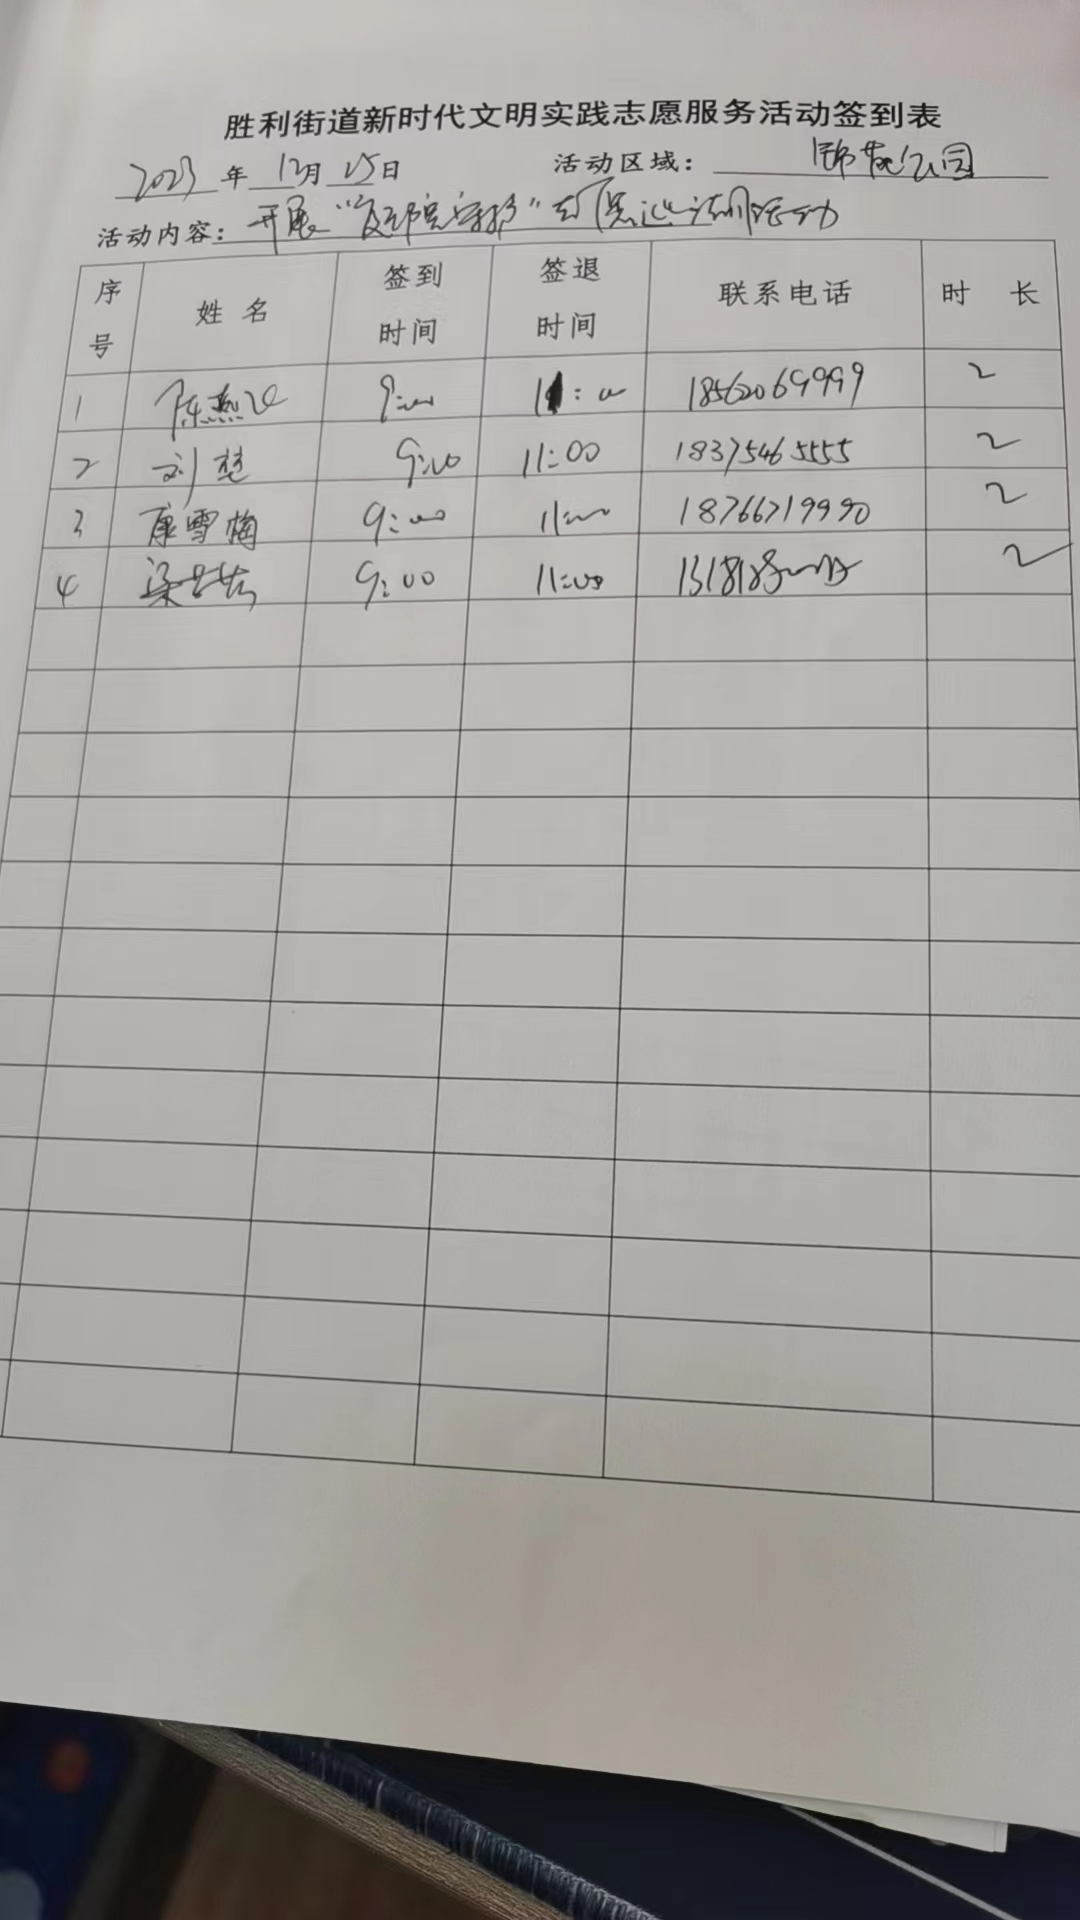 胜利街道新时代文明实践志愿服务活动签到表
2023年12月25日 活动区域：锦苑公园
活动内容：开展“ ”志愿 活动
序号 姓名 签到时间 签退时间 联系电话 时 长
1 陈燕 9:00 11:00 18562069999 2
2 刘慧 9:00 11:00 18375465555 2
3 康雪梅 9:00 11:00 18766719990 2
4 梁 9:00 11:00 2